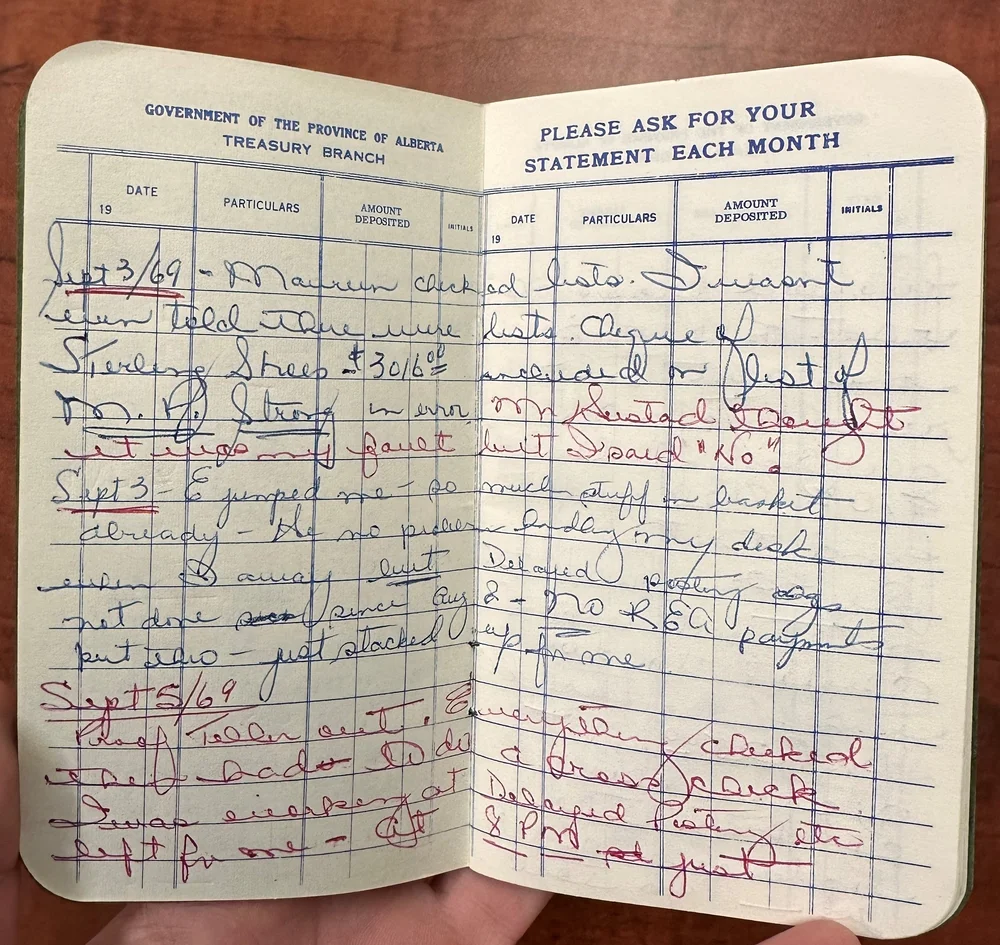 GOVERNMENT OF THE PROVINCE OF ALBERTA
TREASURY BRANCH
DATE
19
PARTICULARS
AMOUNT DEPOSITED
INITIALS
PLEASE ASK FOR YOUR
STATEMENT EACH MONTH
DATE
19
PARTICULARS
AMOUNT DEPOSITED
INITIALS
Sept 3/69 - Maureen checked lists. I wasn't
even told there were lists. Cheque of
Sterling Streep $3016.00 included in list of
M. H. Strong in error. Mr Hustad thought
it was my fault but I said "No".
Sept 3 - E jumped me - so much stuff in basket
already - He no problem handling my desk
when I away but Delayed posting
not done since Aug 8 - no REA payments
put thro - just stacked up for me
Sept 5/69
Proof Teller out. Everything checked
they had to do a cross check
I was working at Delayed Posting etc
left for me - at 8 PM just